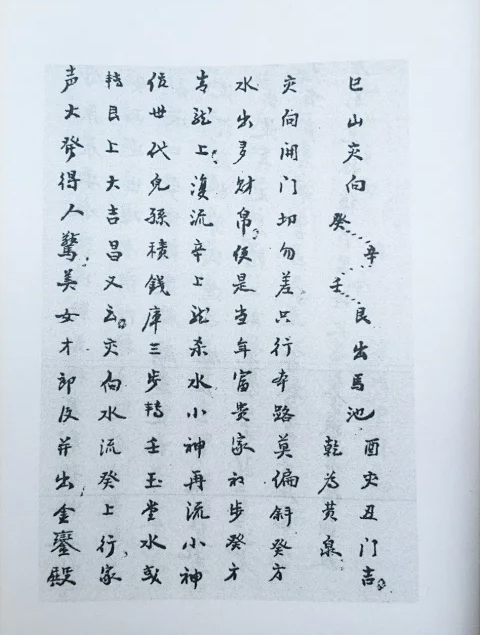 巳山亥向
癸
辛
壬
艮出馬池
酉亥丑门吉
乾為黄泉
亥向開门切勿差只行本路莫偏斜癸方
水出多财帛便是当年富贵家初步癸方
青龍上復流辛上龍杀水小神再流小神
位世代兒孫積錢庫三步轉壬玉堂水或
轉艮上大吉昌又云亥向水流癸上行家
声大發得人驚美女才郎及并出金鑾殿